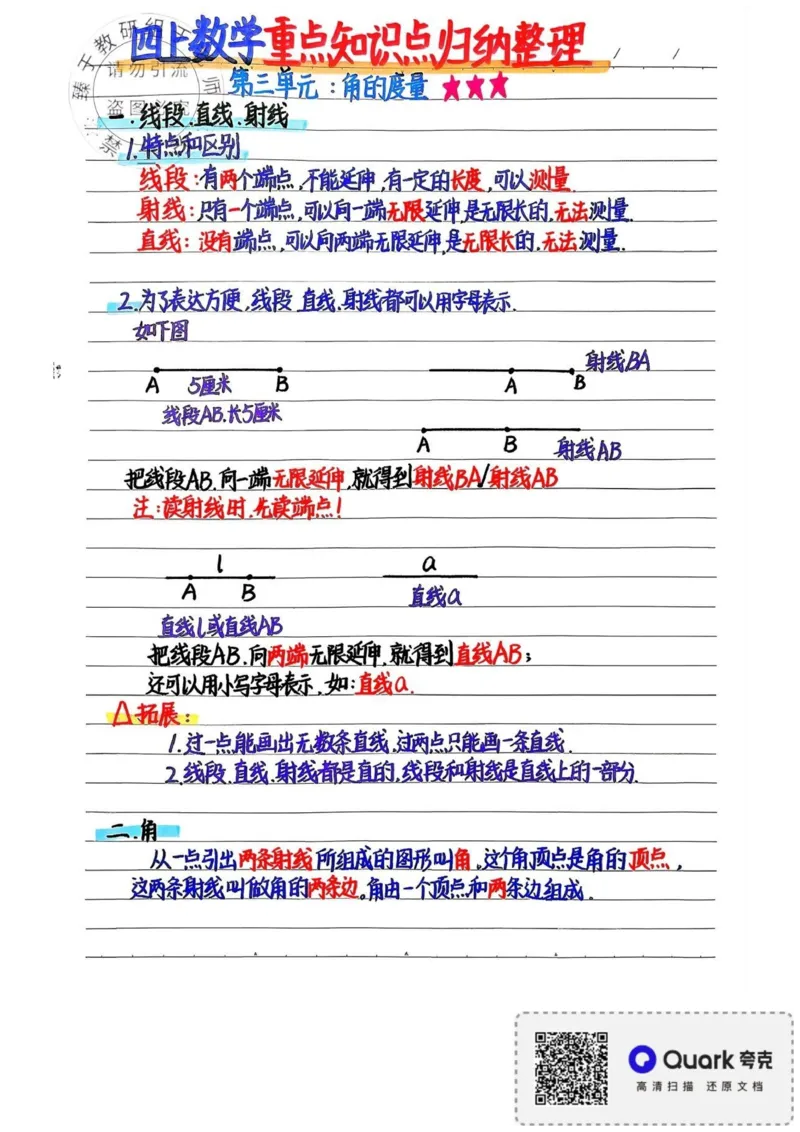 四上数学重点知识点归纳整理
第三单元：角的度量 ★★★
臻于教研组
请勿引流
盗图必究
禁
师
一.线段.直线.射线
1.特点和区别
线段:有两个端点,不能延伸,有一定的长度,可以测量.
射线:只有一个端点,可以向一端无限延伸,是无限长的,无法测量.
直线:没有端点,可以向两端无限延伸,是无限长的.无法测量.
2.为了表达方便,线段.直线.射线都可以用字母表示.
如下图
A 5厘米 B
线段AB.长5厘米
射线BA
A B
A B 射线AB
把线段AB.向一端无限延伸,就得到射线BA/射线AB
注:读射线时.先读端点!
l
A B
直线l或直线AB
a
直线a
把线段AB.向两端无限延伸.就得到直线AB;
还可以用小写字母表示.如:直线a.
△拓展:
1.过一点能画出无数条直线,过两点只能画一条直线.
2.线段.直线.射线都是直的,线段和射线是直线上的一部分.
二.角
从一点引出两条射线所组成的图形叫角。这个角顶点是角的顶点,
这两条射线叫做角的两条边。角由一个顶点和两条边组成.
Quark夸克
高清扫描 还原文档